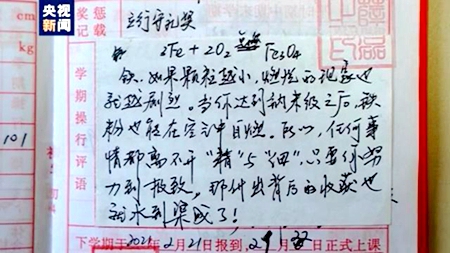 央视新闻
cm
kg
101
奖惩记载
守礼奖
3Fe + 2O₂ 点燃 Fe₃O₄
学期操行评语
铁,如果颗粒越小,燃烧的现象也
就越剧烈。当你达到纳米级之后,铁
粉也能在空气中自燃。所以,任何事
情都离不开“精”与“细”,只要你努
力到极致,那什么背后的收获也
就水到渠成了!
下学期于2021年2月21日报到,2月 日正式上课